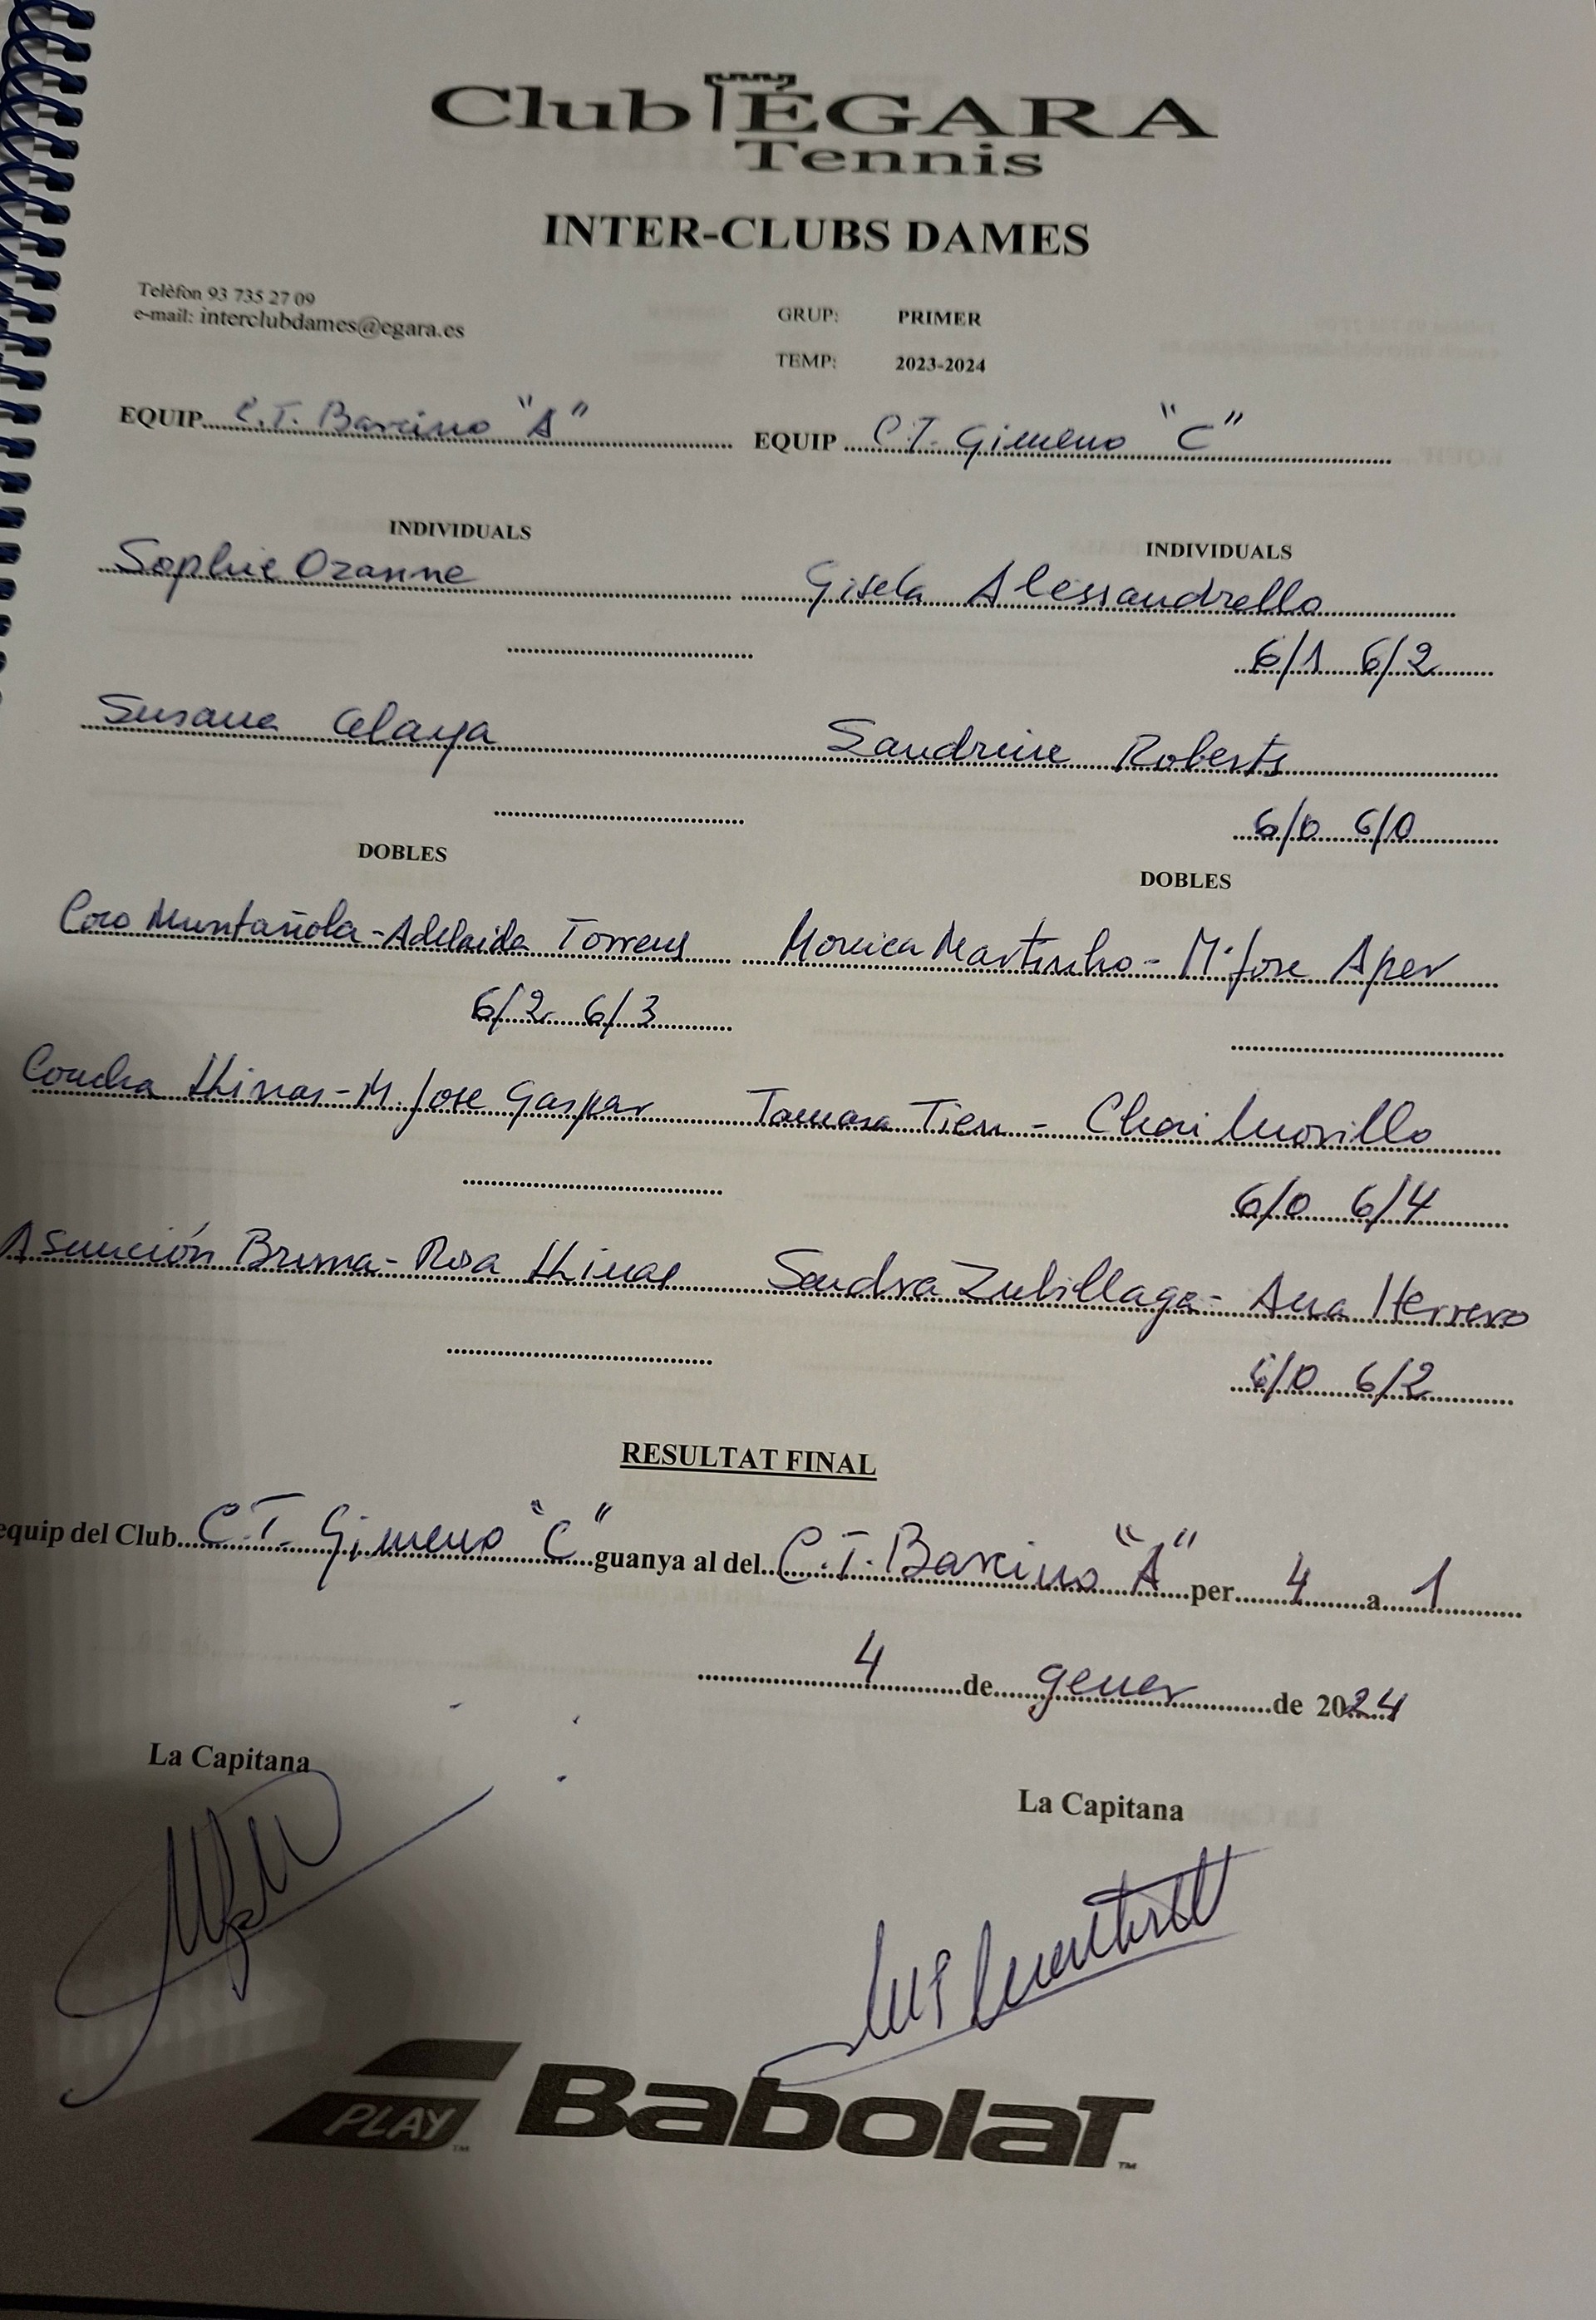 Club ÉGARA
Tennis
INTER-CLUBS DAMES
Telèfon 93 735 27 09
e-mail: interclubdames@egara.es
GRUP: PRIMER
TEMP: 2023-2024
EQUIP C.T. Barcino "A" EQUIP C.T. Gimeno "C"
INDIVIDUALS INDIVIDUALS
Sophie Ozanne Gisela Alessandrello
6/1 6/2
Susana Celaya Sandrine Roberts
6/0 6/0
DOBLES DOBLES
Coro Muntañola - Adelaida Torrens Monica Martinho - Mª Jose Aper
6/2 6/3
Concha - M. Jose Gaspar Tamara Tien - Chai Morillo
6/0 6/4
Asunción Bruna - Rosa Sandra Zubillaga - Ana Herrero
6/0 6/2
RESULTAT FINAL
equip del Club C.T. Gimeno "C" guanya al del C.T. Barcino "A" per 4 a 1
4 de gener de 2024
La Capitana La Capitana
PLAY™ Babolat™